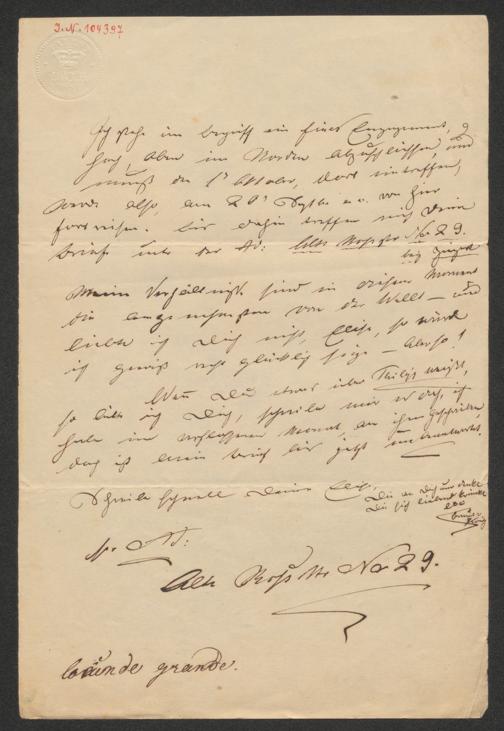 J.N. 104397
Ich stehe im Begriff ein fixes Engagement,
hoch oben im Norden abzuschließen, und
muß den 1t October, dort eintreffen,
werde also, am 20t Septbr von hier
fortreisen. bis dahin treffen mich Deine
Briefe unter der Ad: Alte Roßstr Nr 29.
bei
Meine Verhältniße sind in diesem Moment
die angenehmsten von der Welt – und
liebte ich Dich nicht, Elise, so würde
ich gewiß recht glücklich sein – Also!
Wenn Du etwas über Philip weißt,
so bitte ich Dich, schreibe mir es doch, ich
habe im verflossenen Monat an ihn geschrieben,
doch ist mein Brief bis jetzt unbeantwortet.
Schreibe schnell Deiner Elis.
Die an Dich nur denkt
Die sich
Ad:
Alte Roß Str Nr 29.
grande.